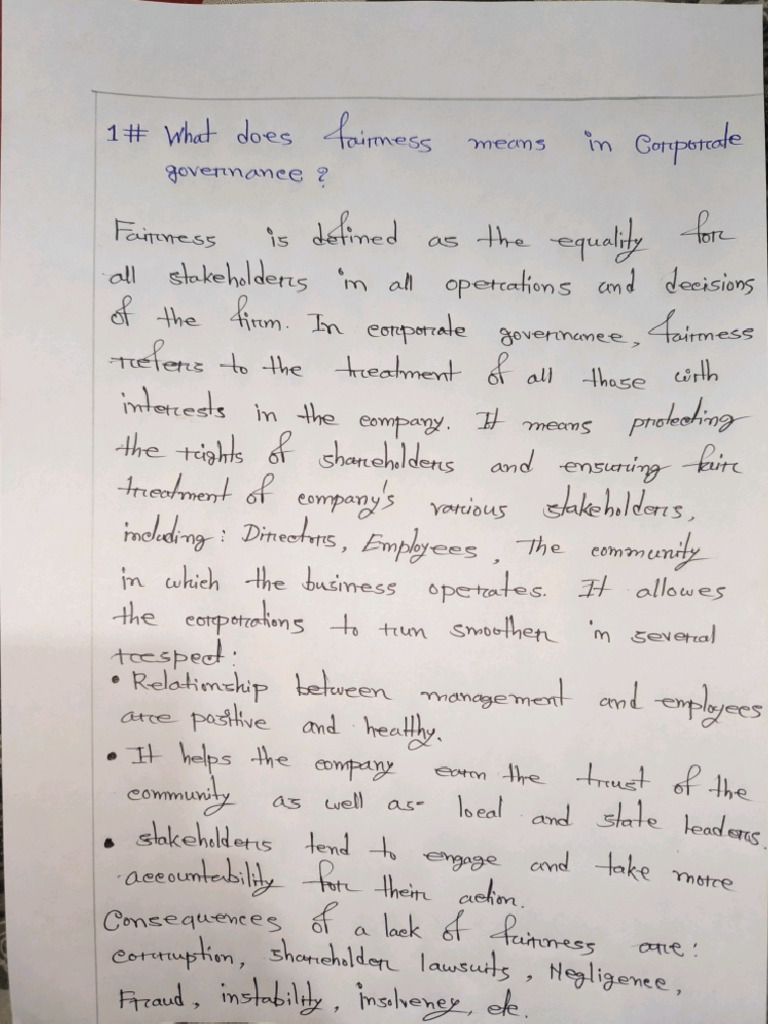 1# What does fairness means in Corporate
governance?
Fairness is defined as the equality for
all stakeholders in all operations and decisions
of the firm. In corporate governance, fairness
refers to the treatment of all those with
interests in the company. It means protecting
the rights of shareholders and ensuring fair
treatment of company's various stakeholders,
including: Directors, Employees, The community
in which the business operates. It allowes
the corporations to run smoother in several
respect:
• Relationship between management and employees
are positive and healthy.
• It helps the company earn the trust of the
community as well as- local and state leaders.
• stakeholders tend to engage and take more
accountability for their action.
Consequences of a lack of fairness are:
corruption, shareholder lawsuits, Negligence,
Fraud, instability, insolvency, etc.